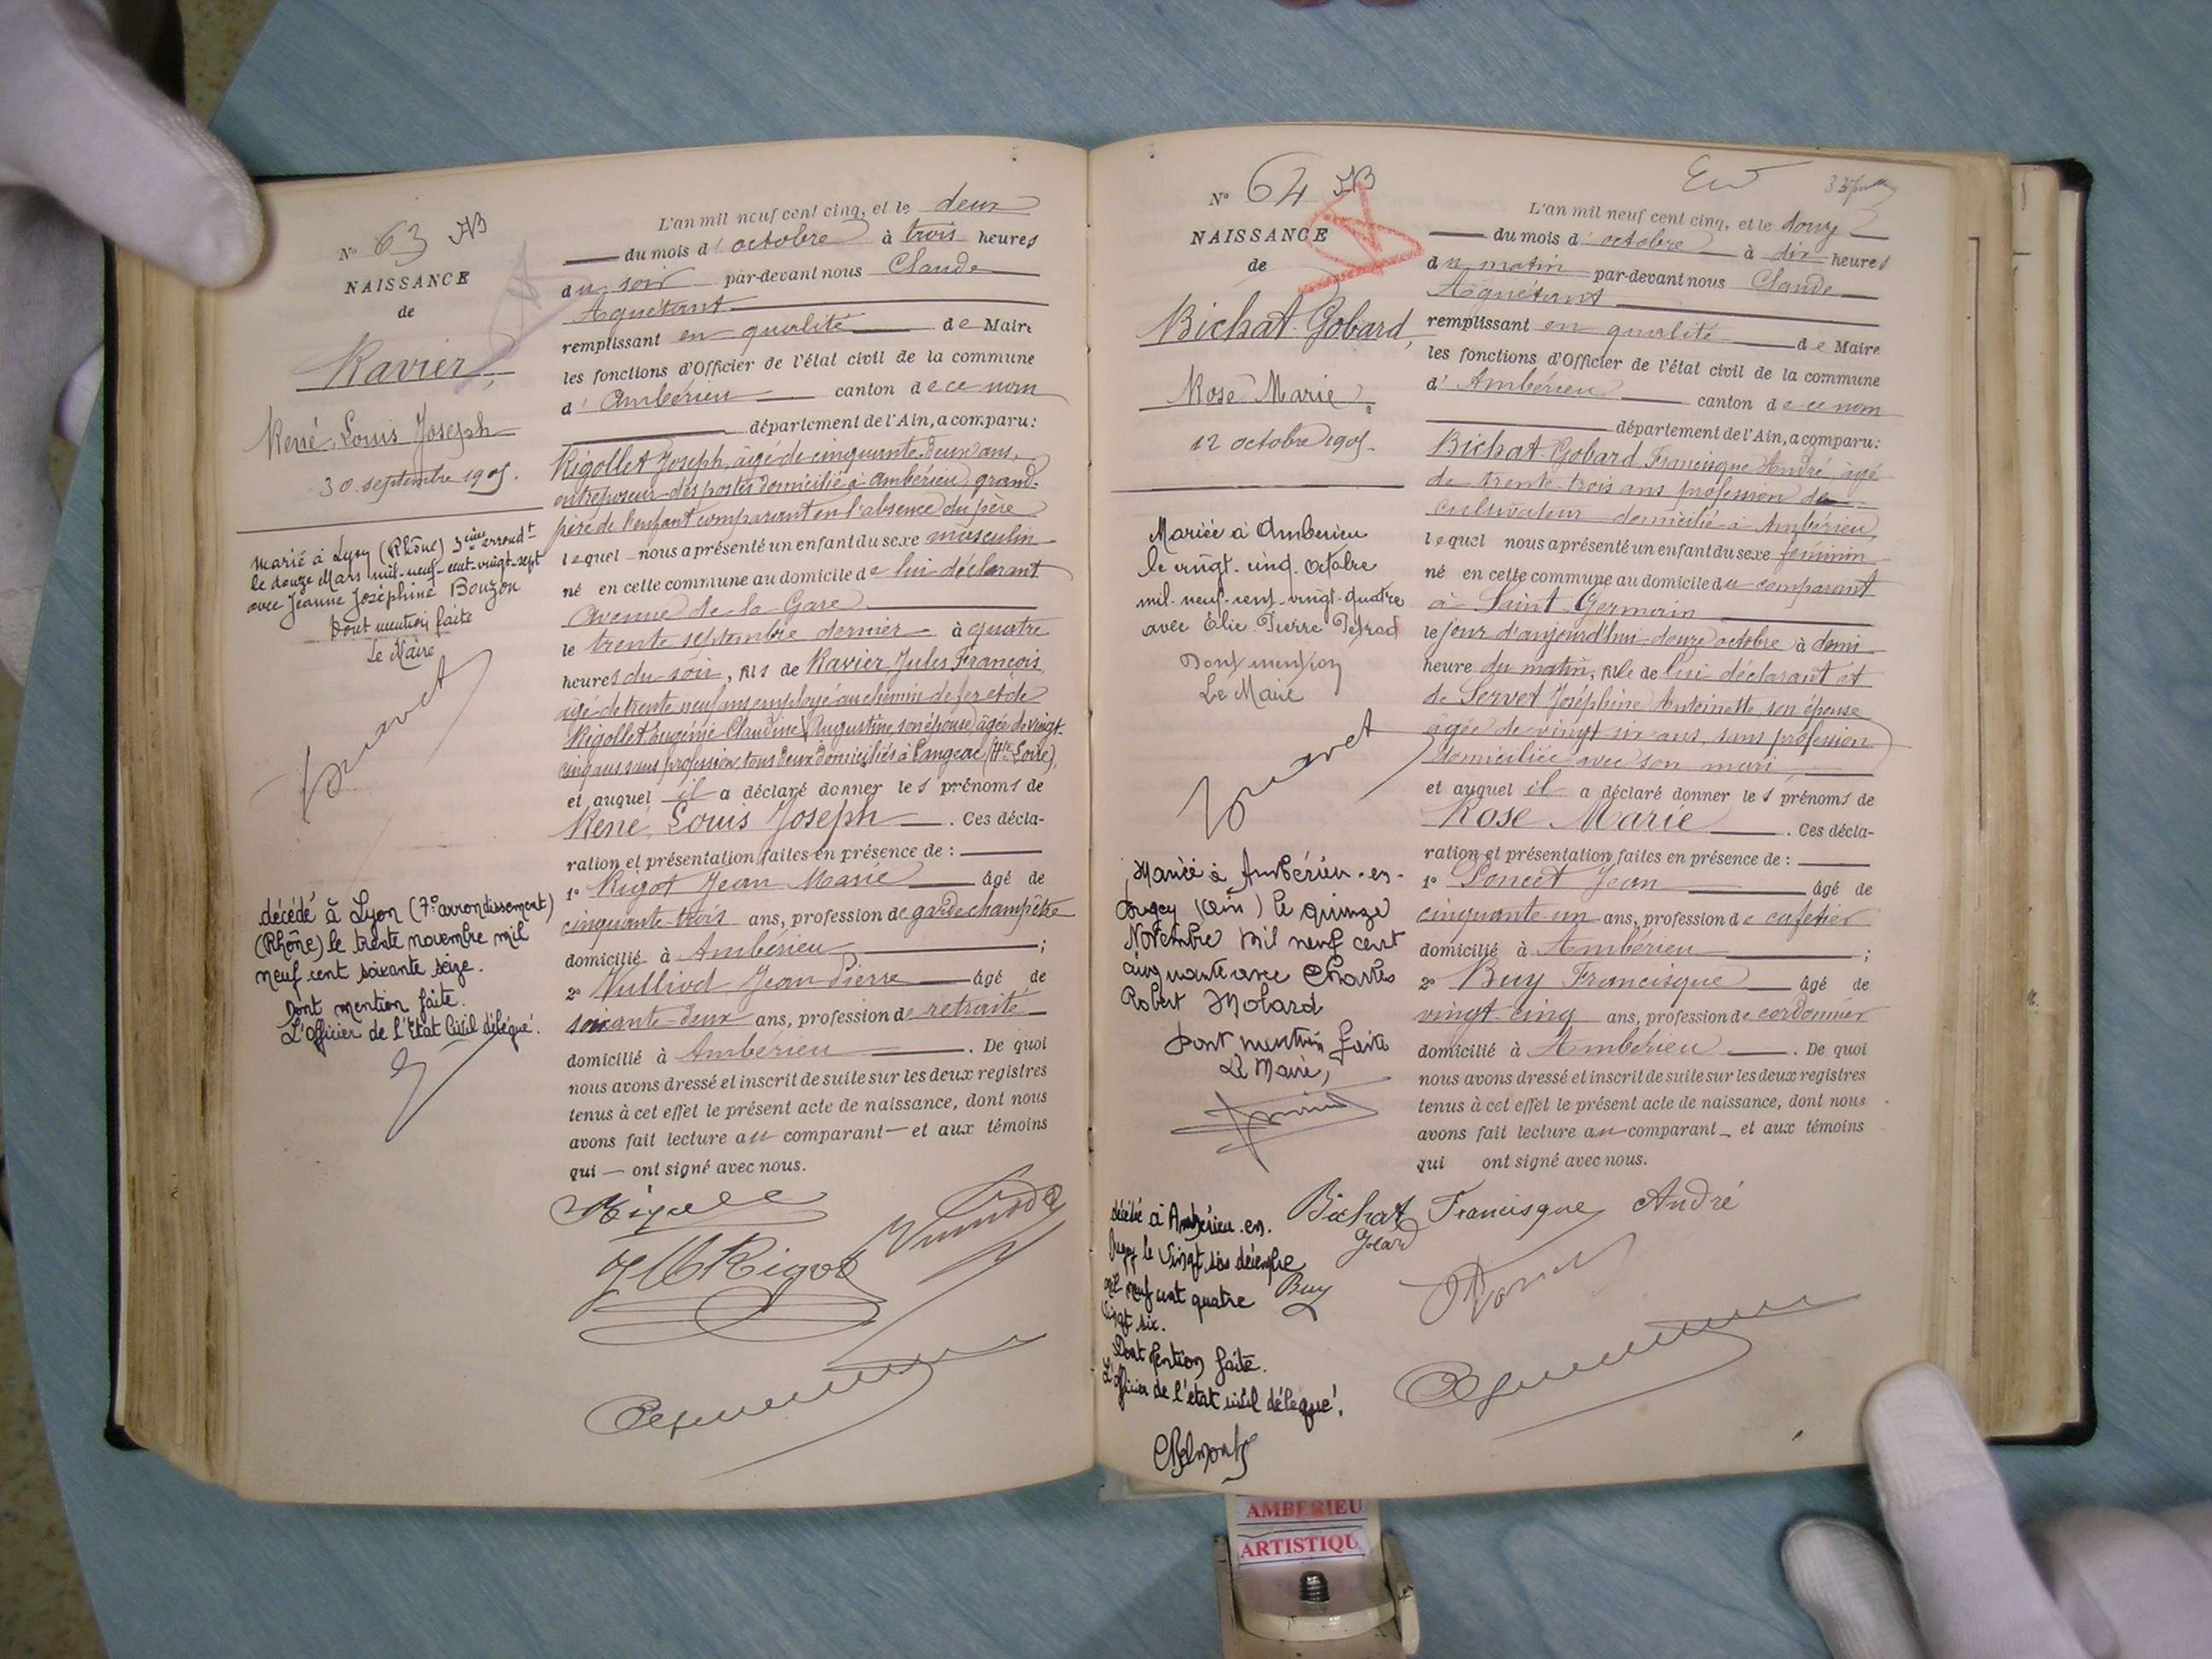 N° 63
NAISSANCE
de
Ravier,
René Louis Joseph
30 septembre 1905.
Marié à Lyon (Rhône) 3ième arrondt
le douze Mars mil-neuf-cent-vingt-sept
avec Jeanne Joséphine Bouzon
Dont mention faite
Le Maire
décédé à Lyon (7e arrondissement)
(Rhône) le trente novembre mil
neuf cent soixante seize.
Dont mention faite.
L'Officier de l'Etat Civil délégué.
L'an mil neuf cent cinq, et le deux
du mois d'octobre à trois heures
du soir par-devant nous Claude
Aguétant
remplissant en qualité de Maire
les fonctions d'Officier de l'état civil de la commune
d'Ambérieu canton de ce nom
département de l'Ain, a comparu:
Rigollet Joseph, âgé de cinquante-deux ans,
entreposeur des postes domicilié à Ambérieu, grand-
père de l'enfant comparant en l'absence du père
lequel nous a présenté un enfant du sexe masculin
né en cette commune au domicile de lui déclarant
Avenue de la Gare
le trente septembre dernier à quatre
heures du soir, fils de Ravier Jules François,
âgé de trente neuf ans employé au chemin de fer et de
Rigollet Eugénie Claudine Augustine, son épouse, âgée de vingt-
cinq ans sans profession, tous deux domiciliés à Langeac (Hte Loire),
et auquel il a déclaré donner les prénoms de
René Louis Joseph. Ces décla-
ration et présentation faites en présence de :
1° Rigot Jean Marie âgé de
cinquante-trois ans, profession de garde champêtre
domicilié à Ambérieu ;
2° Vulliod Jean Pierre âgé de
soixante-deux ans, profession de retraité
domicilié à Ambérieu. De quoi
nous avons dressé et inscrit de suite sur les deux registres
tenus à cet effet le présent acte de naissance, dont nous
avons fait lecture au comparant et aux témoins
qui ont signé avec nous.
JM Rigot
N° 64
NAISSANCE
de
Bichat-Gobard,
Rose Marie
12 octobre 1905.
Mariée à Amberieu
le vingt-cinq Octobre
mil-neuf-cent-vingt-quatre
avec Elie Pierre
Dont mention
Le Maire
Mariée à Ambérieu-en-
Bugey (Ain) le quinze
Novembre mil neuf cent
cinquante avec Charles
Robert Molard
Dont mention faite
Le Maire,
décédée à Ambérieu-en-
Bugey le vingt six décembre
mil neuf cent quatre
vingt six.
Dont mention faite.
L'officier de l'état civil délégué,
L'an mil neuf cent cinq, et le douze
du mois d'octobre à dix heures
du matin par-devant nous Claude
Aguétant
remplissant en qualité de Maire
les fonctions d'Officier de l'état civil de la commune
d'Ambérieu canton de ce nom
département de l'Ain, a comparu:
Bichat-Gobard Francisque André, âgé
de trente-trois ans profession de
cultivateur domicilié à Ambérieu,
lequel nous a présenté un enfant du sexe féminin
né en cette commune au domicile du comparant
à Saint-Germain
le jour d'aujourd'hui douze octobre à demi
heure du matin, fille de lui déclarant et
de Servet Joséphine Antoinette, son épouse
âgée de vingt six ans, sans profession
domiciliée avec son mari
et auquel il a déclaré donner les prénoms de
Rose Marie. Ces décla-
ration et présentation faites en présence de :
1° Poncet Jean âgé de
cinquante-un ans, profession de cafetier
domicilié à Ambérieu ;
2° Buy Francisque âgé de
vingt-cinq ans, profession de cordonnier
domicilié à Ambérieu. De quoi
nous avons dressé et inscrit de suite sur les deux registres
tenus à cet effet le présent acte de naissance, dont nous
avons fait lecture au comparant et aux témoins
qui ont signé avec nous.
Bichat Francisque André
Gobard
Buy
AMBERIEU
ARTISTIQU